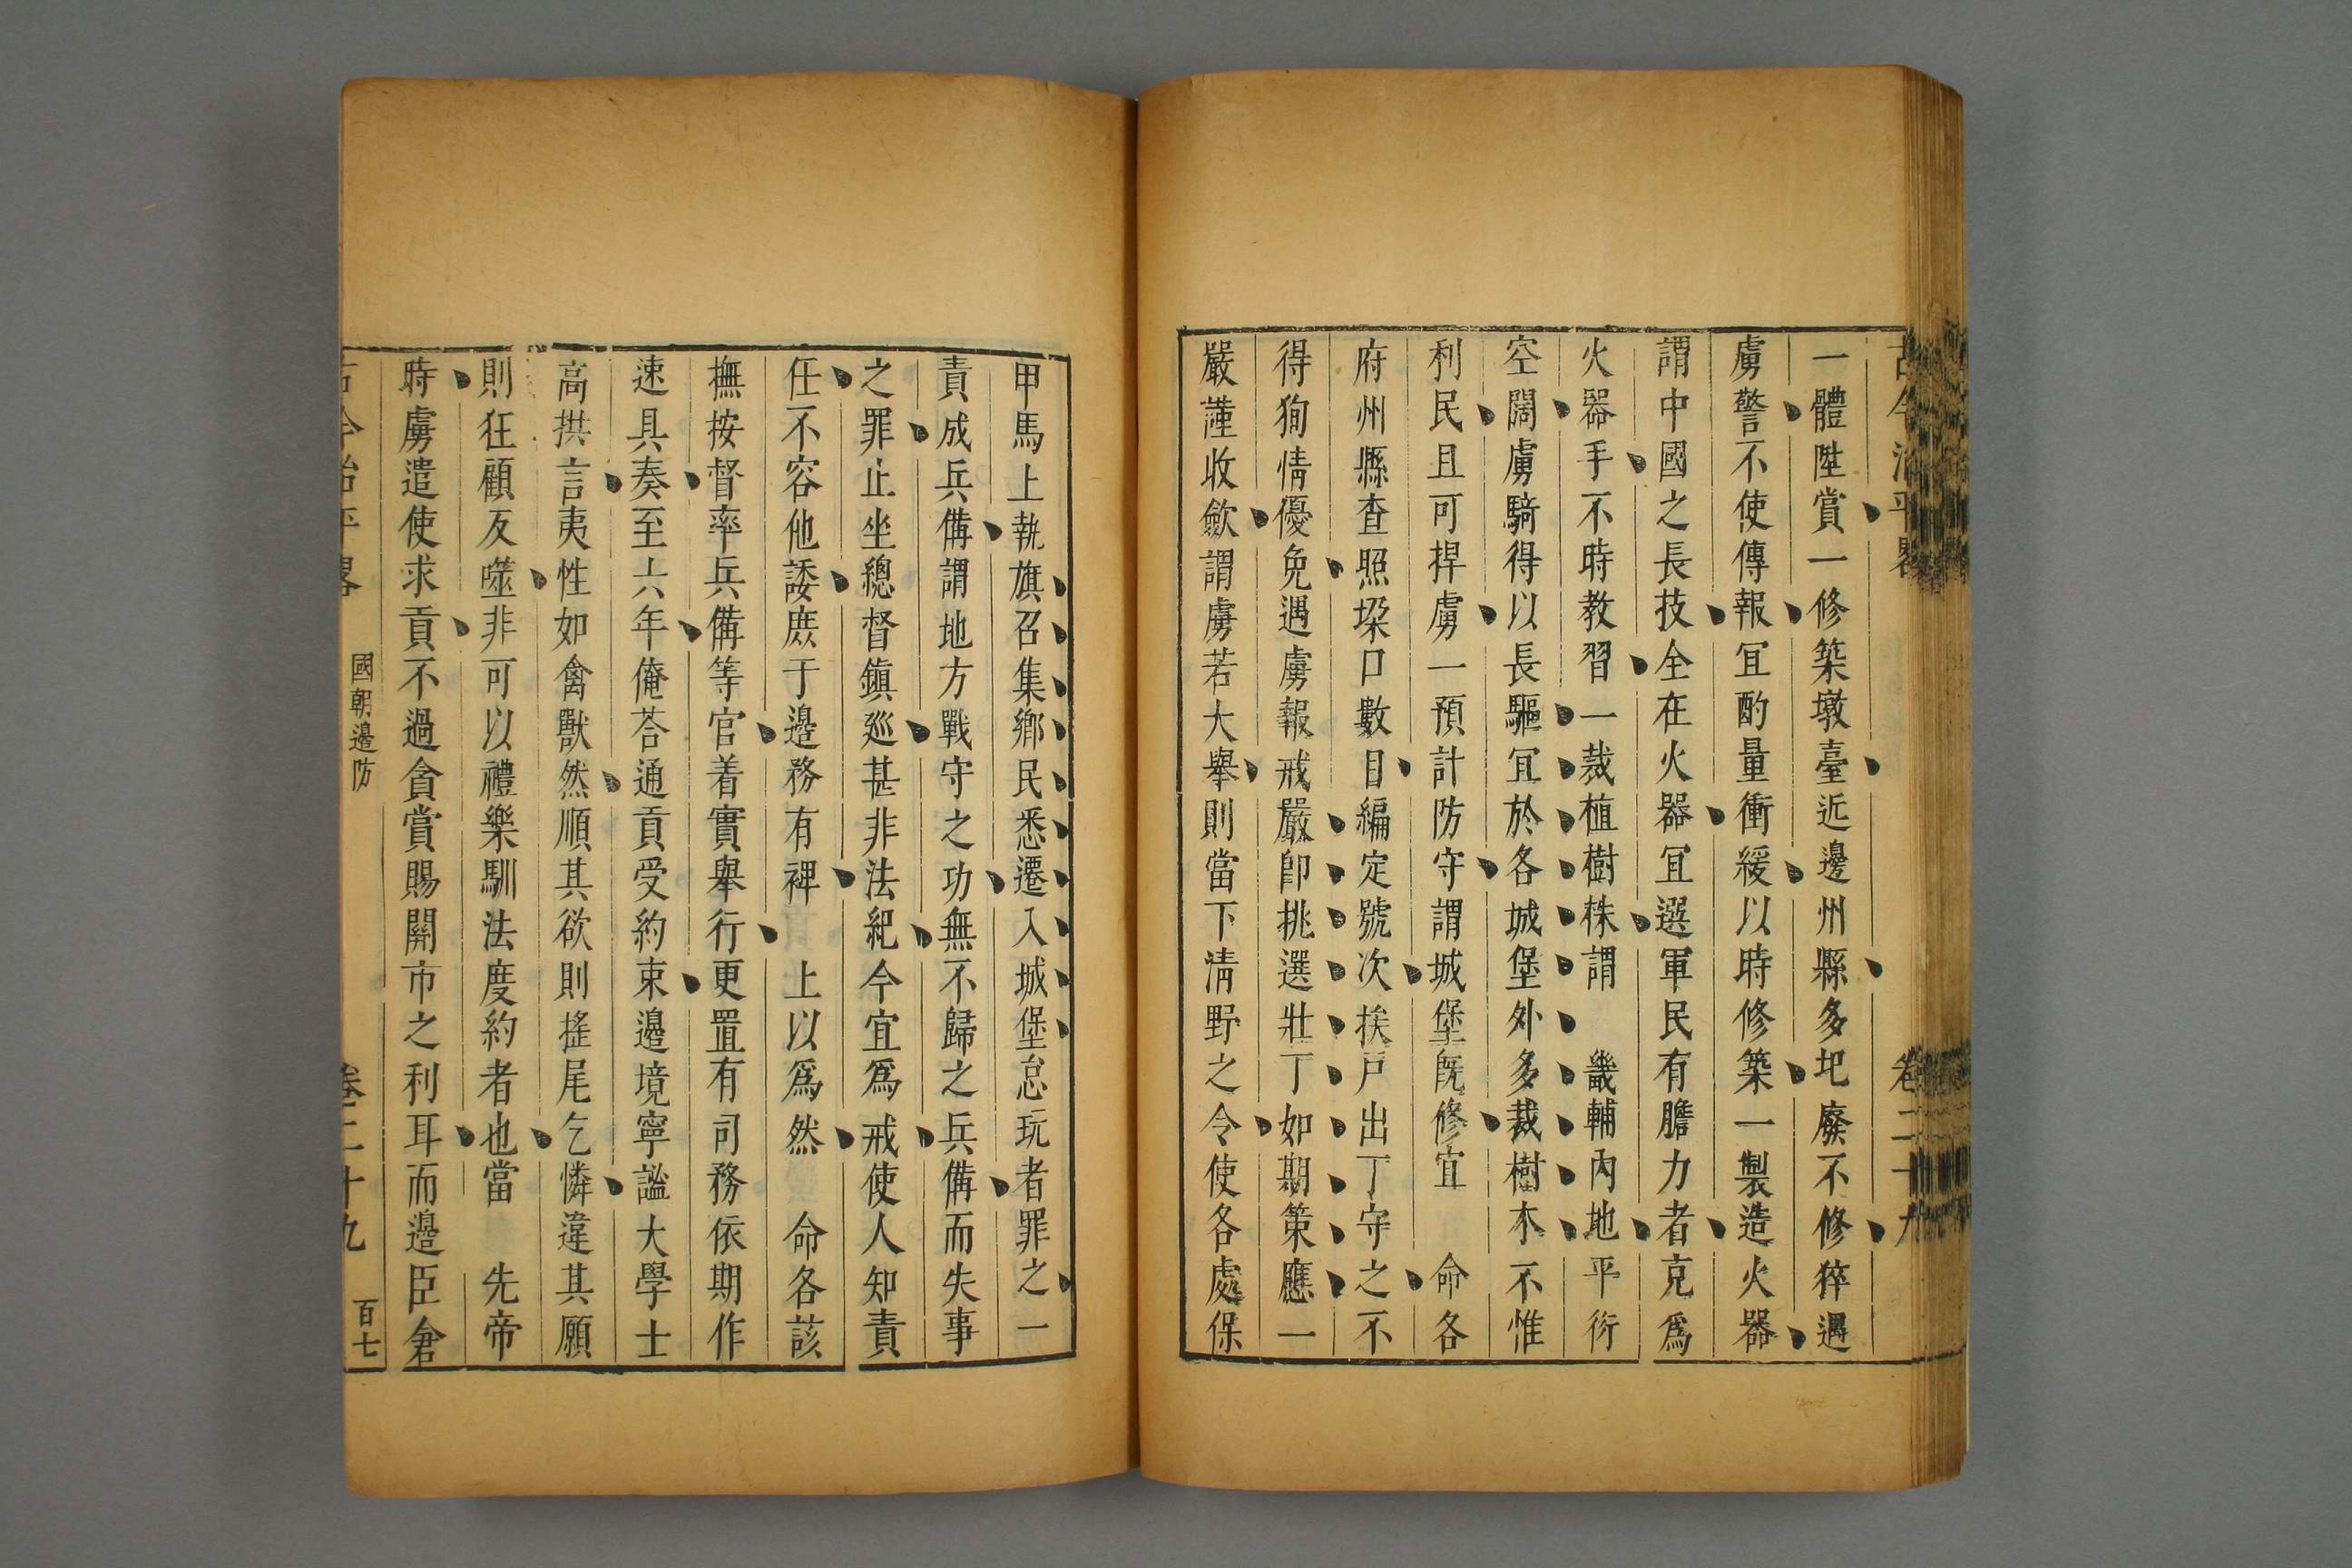 古今治平畧 卷二十九
一體陞賞一修築墩臺近邊州縣多圮廢不修猝遇
虜警不使傳報冝酌量衝緩以時修築一製造火器
謂中國之長技全在火器冝選軍民有膽力者克爲
火器手不時教習一裁植樹株謂 畿輔內地平衍
空闊虜騎得以長驅冝於各城堡外多裁樹木不惟
利民且可捍虜一預計防守謂城堡既修宜 命各
府州縣查照垜口數目編定號次挨戸出丁守之不
得狥情優免遇虜報戒嚴卽挑選壯丁如期策應一
嚴謹收斂謂虜若大舉則當下清野之令使各處保
甲馬上執旗召集鄉民悉遷入城堡怠玩者罪之一
責成兵備謂地方戰守之功無不歸之兵備而失事
之罪止坐總督鎮巡甚非法紀今宜爲戒使人知責
任不容他諉庶于邊務有裨 上以爲然 命各該
撫按督率兵備等官着實舉行更置有司務依期作
速具奏至六年俺荅通貢受約束邊境寧謐大學士
高拱言夷性如禽獸然順其欲則搖尾乞憐違其願
則狂顧反噬非可以禮樂馴法度約者也當 先帝
時虜遣使求貢不過貪賞賜關市之利耳而邊臣倉
古今治平畧 國朝邊防 卷二十九 百七